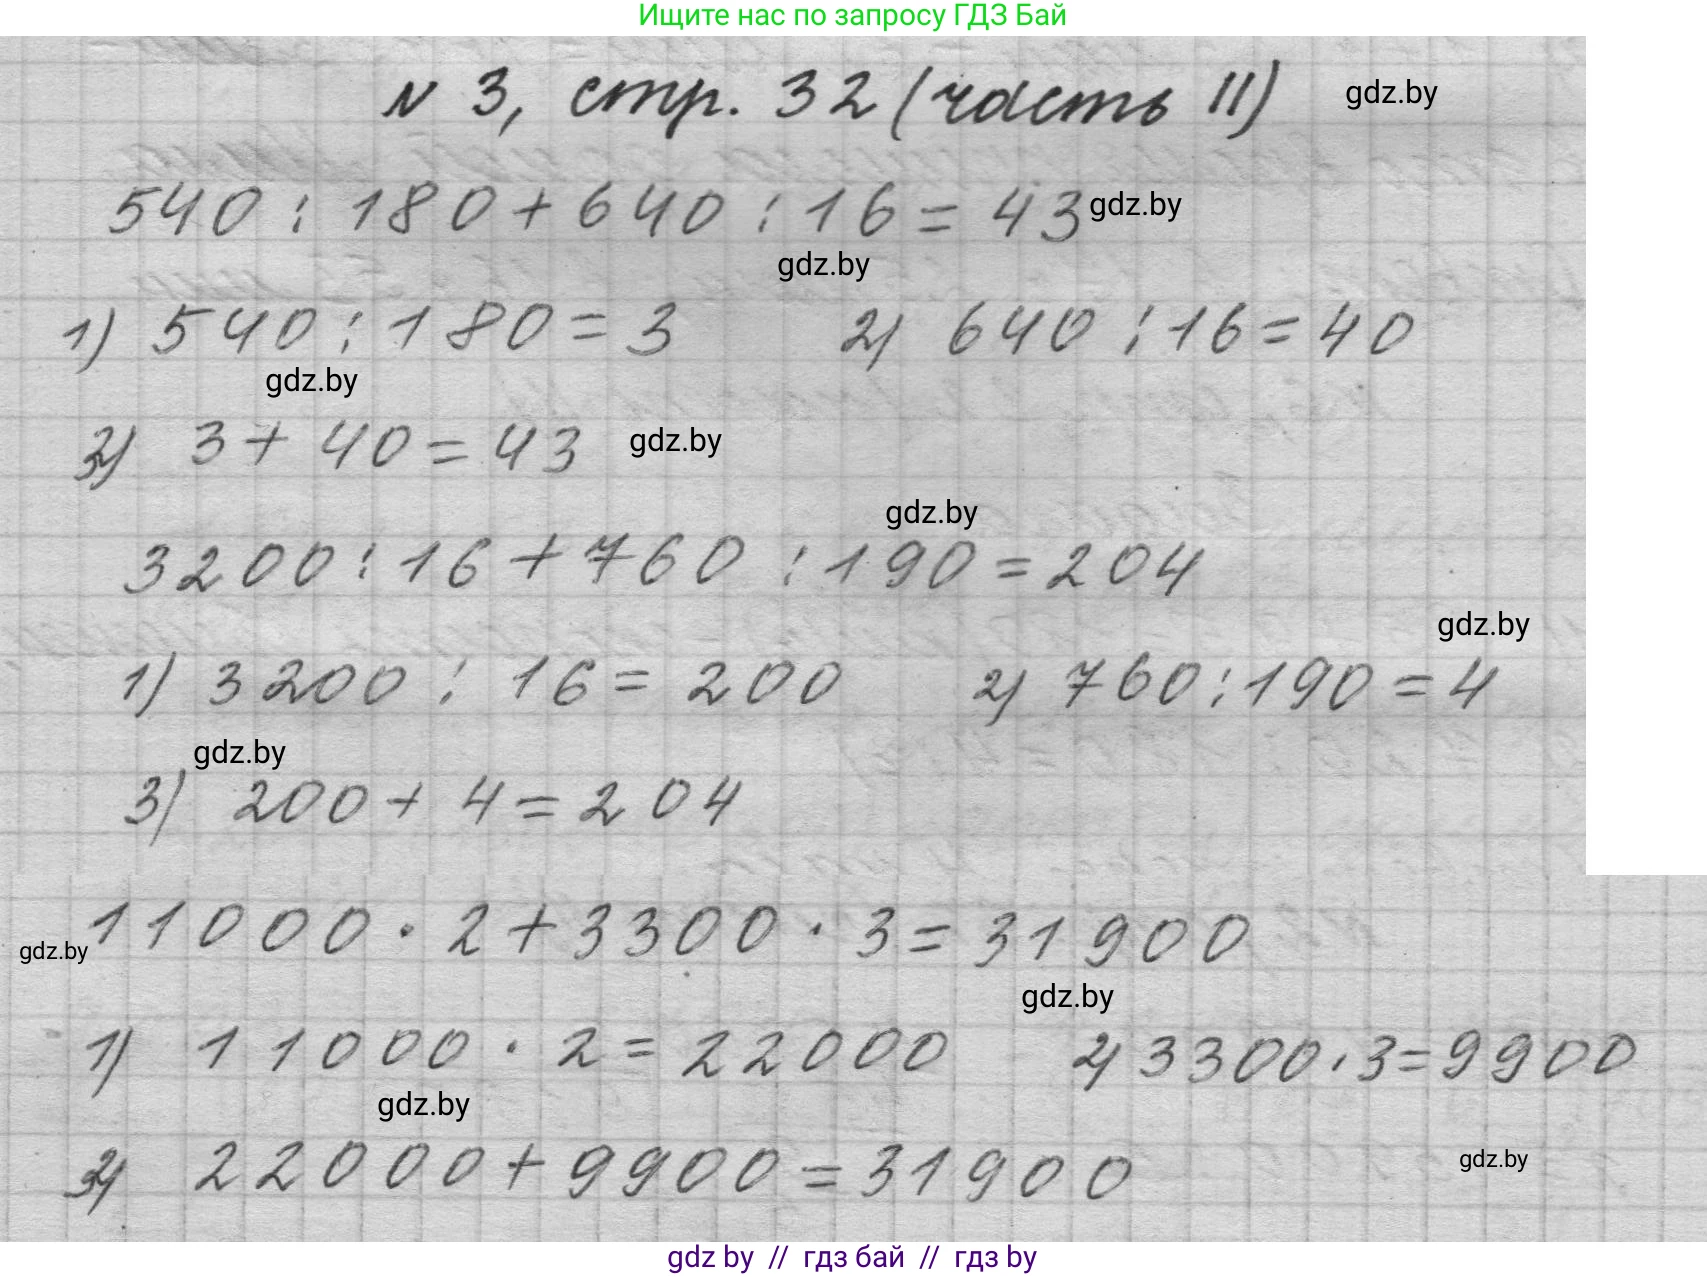 Ищите нас по запросу ГДЗ Бай
№ 3, стр. 32 (часть II) gdz.by
540 : 180 + 640 : 16 = 43 gdz.by
gdz.by
1) 540 : 180 = 3 2) 640 : 16 = 40
gdz.by
3) 3 + 40 = 43 gdz.by
gdz.by
3200 : 16 + 760 : 190 = 204
gdz.by
1) 3200 : 16 = 200 2) 760 : 190 = 4
gdz.by
3) 200 + 4 = 204
11000 · 2 + 3300 · 3 = 31900
gdz.by
gdz.by
1) 11000 · 2 = 22000 2) 3300 · 3 = 9900
gdz.by
3) 22000 + 9900 = 31900
gdz.by
gdz by // гдз бай // гдз by